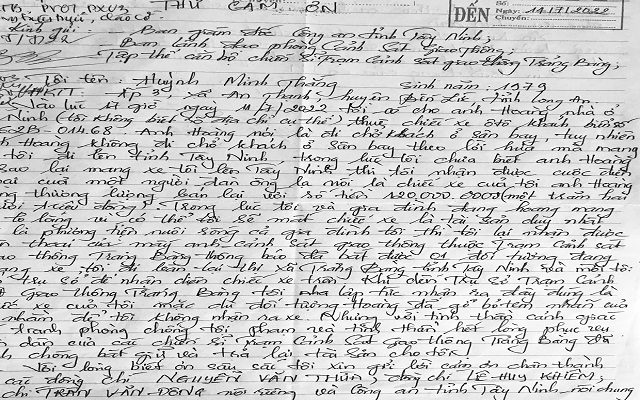 THƯ CẢM ƠN
ĐẾN Số:
Ngày: 14/7/2022
Chuyển:
PV01, PX03
Kính gửi: - Ban giám đốc công an tỉnh Tây Ninh;
- Ban lãnh đạo phòng Cảnh Sát giao thông;
- Tập thể cán bộ chiến sĩ trạm Cảnh sát giao thông Trảng Bàng;
Tôi tên: Huỳnh Minh Thắng sinh năm: 1979
ấp 3, xã An Thạnh, huyện Bến Lức, tỉnh Long An
Vào lúc 17 giờ ngày 11/7/2022 tôi có cho anh Hoàng nhà ở
Ninh (tôi không biết rõ địa chỉ cụ thể) thuê chiếc xe ôtô khách biển số
62B-014.68. Anh Hoàng nói là đi chở khách ở sân bay, tuy nhiên
anh Hoàng không đi chở khách ở sân bay theo lời hứa mà mang
tôi đi lên tỉnh Tây Ninh trong lúc tôi chưa biết anh Hoàng
sao lại mang xe tôi lên Tây Ninh thì tôi nhận được cuộc điện
thoại của một người đàn ông lạ nói là chiếc xe của tôi anh Hoàng
thương lượng bán lại với số tiền 120.000.000đ (một trăm hai
mươi triệu đồng). Trong lúc tôi và gia đình đang hoang mang
lo lắng vì có thể tôi sẽ mất chiếc xe là tài sản duy nhất
là phương tiện nuôi sống cả gia đình tôi thì tôi lại nhận được
thoại của mấy anh cảnh sát giao thông thuộc Trạm Cảnh sát
giao thông Trảng Bàng thông báo đã bắt được 01 đối tượng đang
mang xe tôi đi bán tại thị xã Trảng Bàng tỉnh Tây Ninh và mời tôi
trụ sở để nhận diện chiếc xe trên. Khi đến Trụ sở Trạm Cảnh
sát giao thông Trảng Bàng tôi nhận ra đây đúng là
xe của tôi mặc dù đối tượng Hoàng đã gỡ bỏ tem nhãn của
nhằm để tôi không nhận ra xe. Nhưng với tinh thần cảnh giác
tranh phòng chống tội phạm và tinh thần hết lòng phục vụ
dân của các chiến sĩ trạm Cảnh Sát Giao thông Trảng Bàng đã
chóng bắt giữ và trả lại tài sản cho tôi.
Với lòng biết ơn sâu sắc tôi xin gửi lời cảm ơn chân thành
các đồng chí NGUYỄN VĂN THÙA, đồng chí LÊ HUY KHIÊM,
chí TRẦN VĂN ĐÔNG nói riêng và công an tỉnh Tây Ninh nói chung